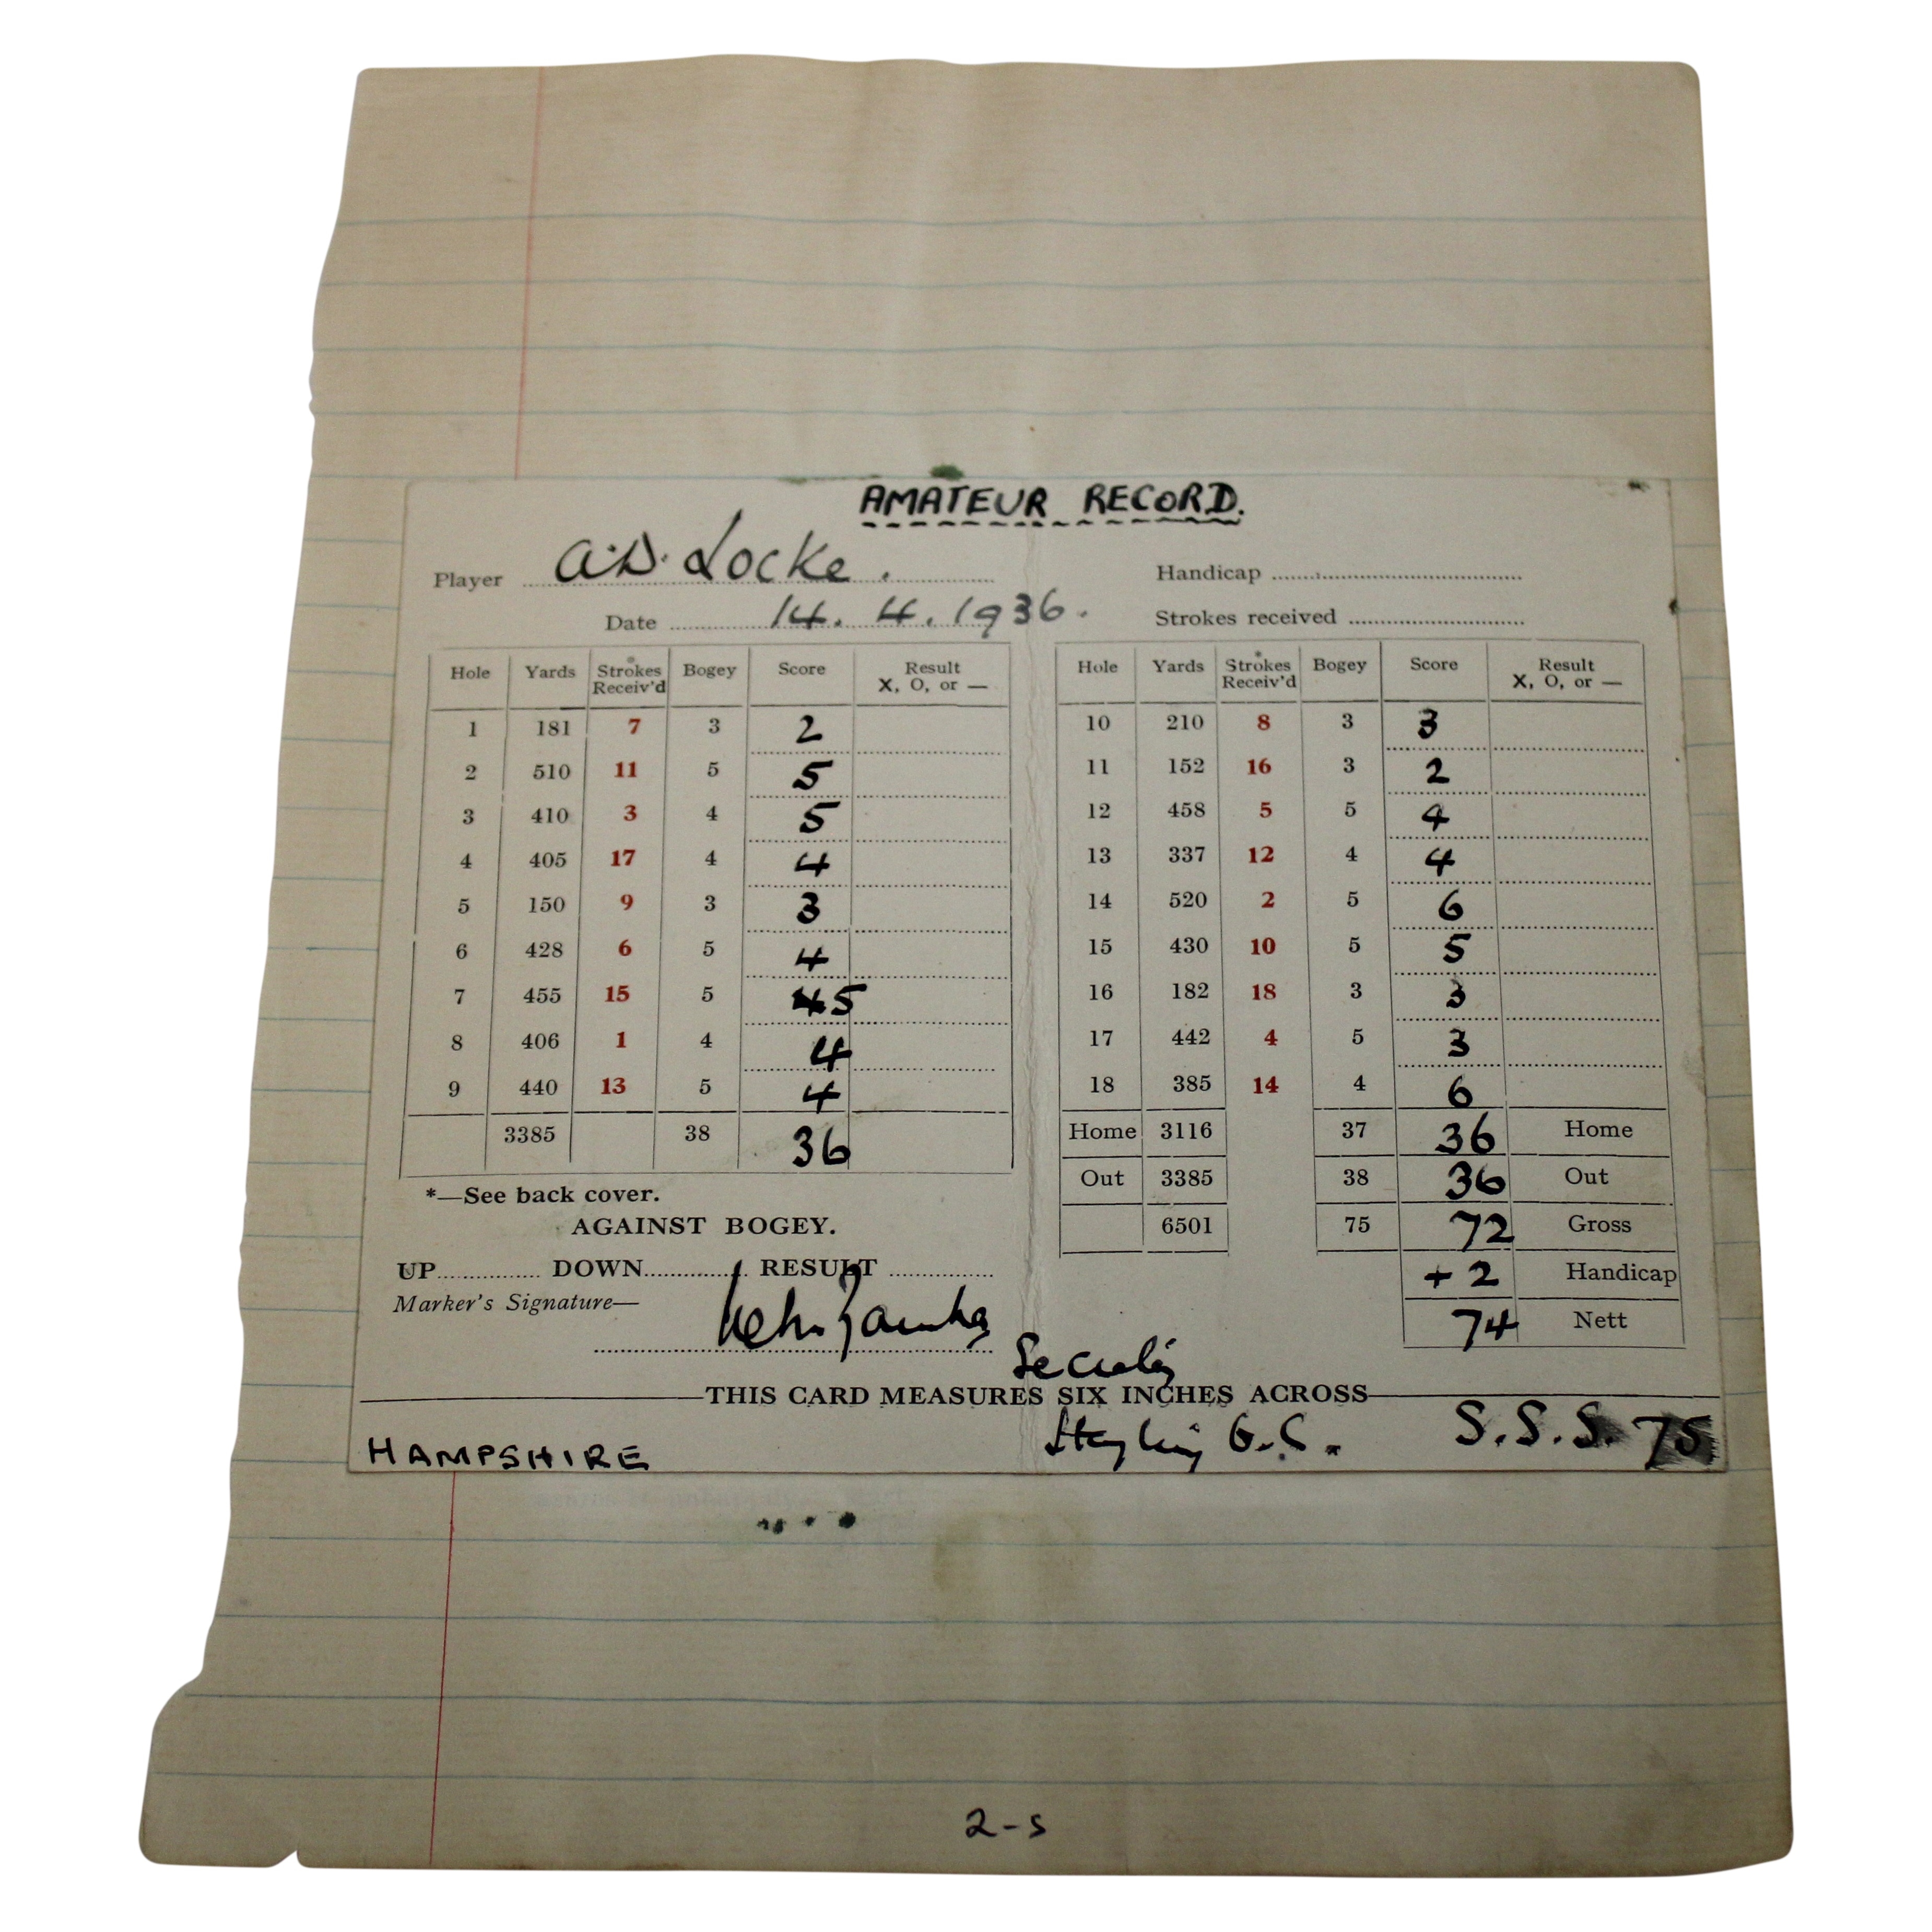 AMATEUR RECORD.
Player A.D. Locke. Handicap
Date 14. 4. 1936. Strokes received
Hole Yards Strokes Receiv'd Bogey Score Result X, O, or —
1 181 7 3 2
2 510 11 5 5
3 410 3 4 5
4 405 17 4 4
5 150 9 3 3
6 428 6 5 4
7 455 15 5 4 5
8 406 1 4 4
9 440 13 5 4
3385 38 36
*—See back cover.
AGAINST BOGEY.
UP DOWN RESULT
Marker's Signature—
Hole Yards Strokes Receiv'd Bogey Score Result X, O, or —
10 210 8 3 3
11 152 16 3 2
12 458 5 5 4
13 337 12 4 4
14 520 2 5 6
15 430 10 5 5
16 182 18 3 3
17 442 4 5 3
18 385 14 4 6
Home 3116 37 36 Home
Out 3385 38 36 Out
6501 75 72 Gross
+ 2 Handicap
74 Nett
Secretary
THIS CARD MEASURES SIX INCHES ACROSS
HAMPSHIRE Hayling G.C. S.S.S. 75
2-s